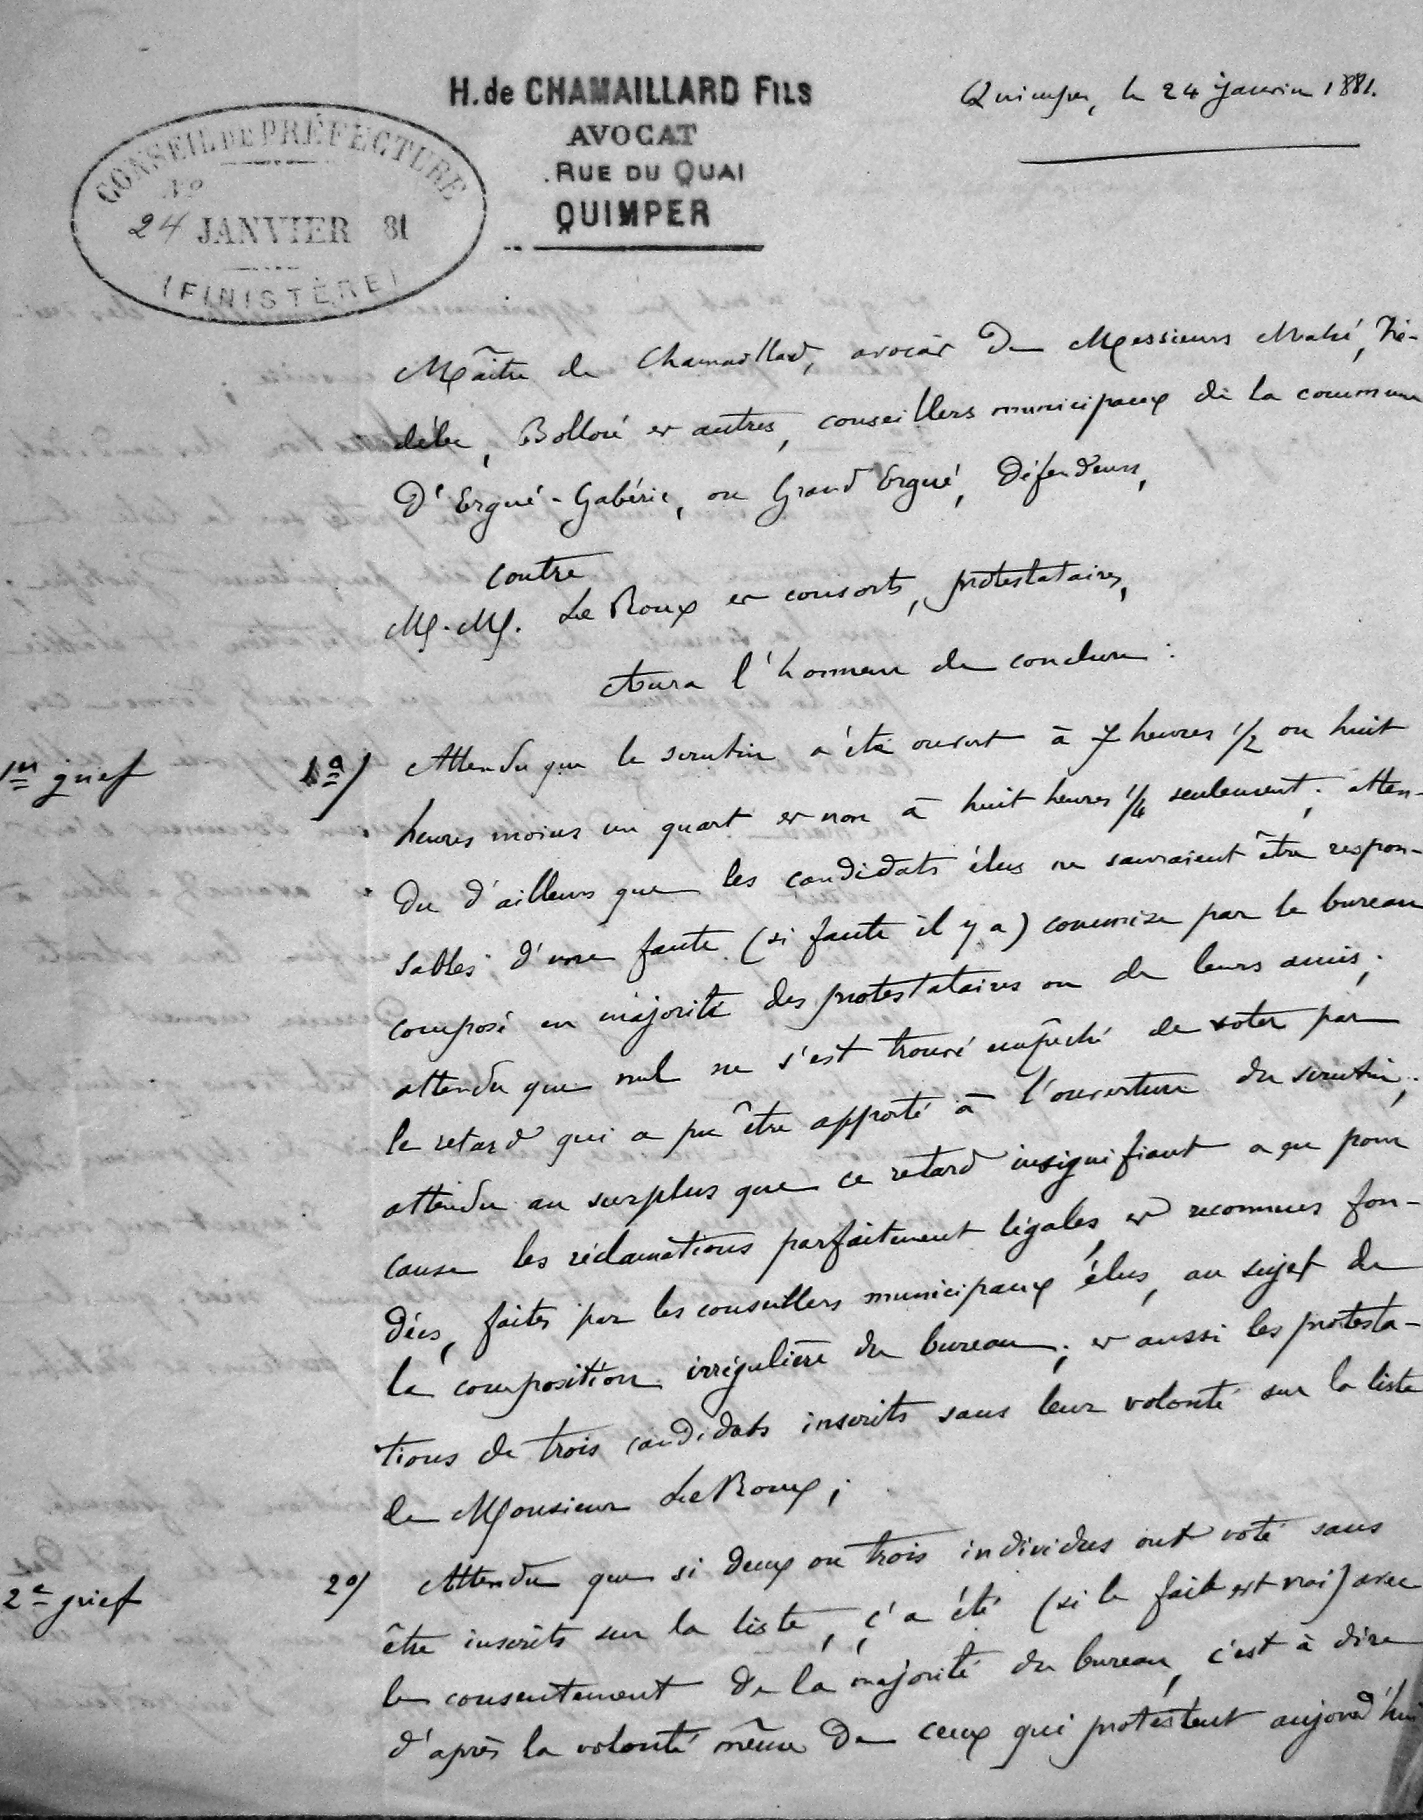 H. de CHAMAILLARD FILS
AVOCAT
RUE DU QUAI
QUIMPER
Quimper, le 24 janvier 1881.
CONSEIL DE PRÉFECTURE
No
24 JANVIER 81
(FINISTÈRE)
Maître de Chamaillard, avocat de Messieurs Mahé, Tré-
débec, Bolloré et autres, conseillers municipaux de la commune
d'Ergué-Gabéric, ou Grand Ergué, défendeurs,
contre
M.M. Le Roux et consorts, protestataires,
Aura l'honneur de conclure :
1er grief
1o/ Attendu que le scrutin a été ouvert à 7 heures 1/2 ou huit
heures moins un quart et non à huit heures 1/4 seulement ; atten-
du d'ailleurs que les candidats élus ne sauraient être respon-
sables d'une faute (si faute il y a) commise par le bureau
composé en majorité des protestataires ou de leurs amis ;
attendu que nul ne s'est trouvé empêché de voter par
le retard qui a pu être apporté à l'ouverture du scrutin ;
attendu au surplus que ce retard insignifiant a eu pour
cause les réclamations parfaitement légales et reconnues fon-
dées, faites par les conseillers municipaux élus, au sujet de
la composition irrégulière du bureau ; et aussi les protesta-
tions de trois candidats inscrits sans leur volonté sur la liste
de Monsieur Le Roux ;
2e grief
2o/ Attendu que si deux ou trois individus ont voté sans
être inscrits sur la liste, ç'a été (si le fait est vrai) avec
le consentement de la majorité du bureau, c'est à dire
d'après la volonté même de ceux qui protestent aujourd'hui